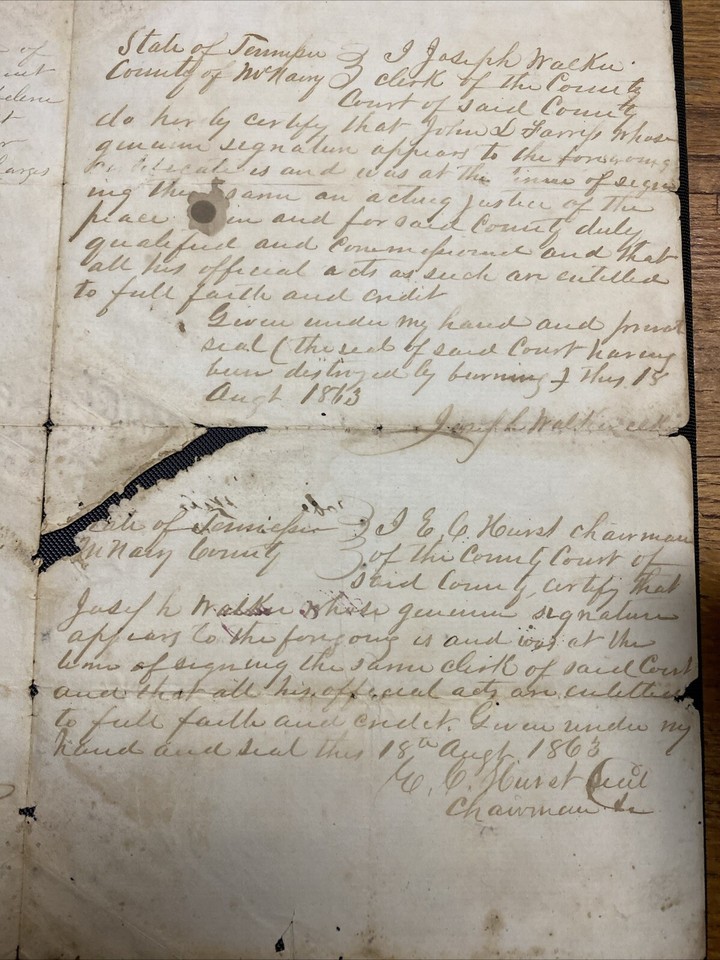 State of Tennessee } I Joseph Walker
County of McNairy } clerk of the County
Court of said County
do herby certify that John L Farris whose
genuine signature appears to the foregoing
certificate is and was at the time of sign
ing the same an acting Justice of the
peace in and for said County duly
qualified and commissioned and that
all his official acts as such are entitled
to full faith and credit
Given under my hand and privat
seal (the seal of said Court having
been destroyed by burning) this 18
Augt 1863
Joseph Walker clk
State of Tennessee } I E. C. Hurst chairman
McNairy County } of the County Court of
said County certify that
Joseph Walker whose genuine signature
appears to the foregoing is and was at the
time of signing the same clerk of said Court
and that all his official acts are entitled
to full faith and credit. Given under my
hand and seal this 18th Augt 1863
E. C. Hurst Seal
Chairman